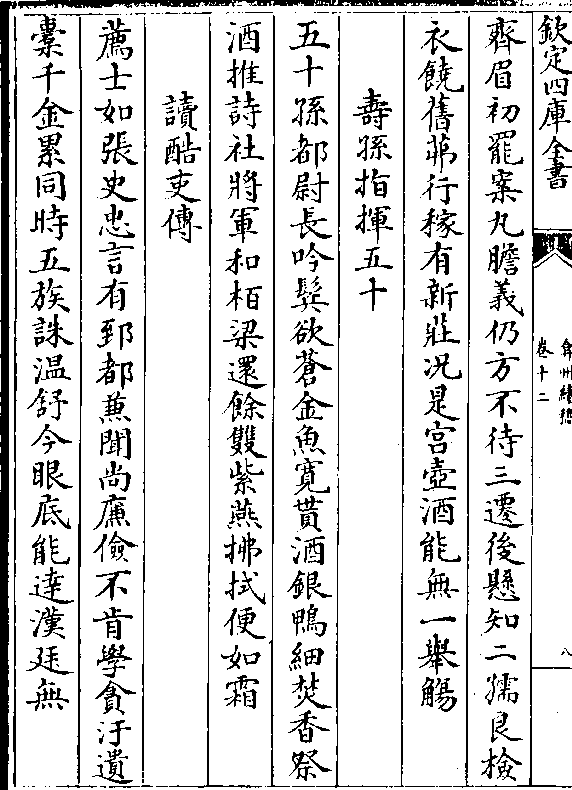 欽定四庫全書
弇州續稿
卷十二
八
齊眉初罷案丸膽義仍方不待三遷後懸知二孺良檢
衣饒舊茀行稼有新莊况是宫壺酒能無一舉觴
壽孫指揮五十
五十孫都尉長吟鬓欲蒼金魚寛貰酒銀鴨細焚香祭
酒推詩社將軍和栢梁還餘雙紫燕拂拭便如霜
讀酷吏傳
薦士如張史忠言有郅都蒹聞尚廉儉不肯學貪汙遺
橐千金累同時五族誅温舒今眼底能達漢廷無